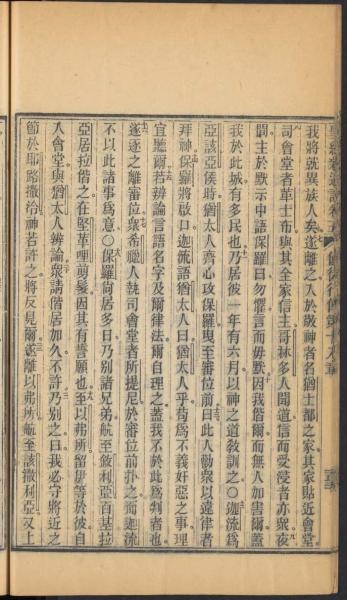 我將就異族人矣遂離之入於敬神者名猶士都之家其家貼近會堂
司會堂者革士布與其全家信主哥林多人聞道信而受浸者亦衆夜
間主於默示中語保羅曰勿懼言而毋默因我偕爾而無人加害爾蓋
我於此城有多民也乃居彼一年有六月以神之道敎訓之○迦流爲
亞該亞侯時猶太人齊心攻保羅曳至審位前曰此人勸衆以違律者
拜神保羅將啟口迦流語猶太人曰猶太人乎苟爲不義奸惡之事理
宜聽爾若辨論言語名字及爾律法爾自理之蓋我不於此爲判者也
遂逐之離審位衆希臘人執司會堂者所提尼於審位前扑之而迦流
不以此諸事爲意○保羅尚居多日乃別諸兄弟航至敘利亞百基拉
亞居拉偕之在堅革哩剪髮因其有誓願也至以弗所留伊等於彼自
入會堂與猶太人辨論衆請偕居加久不許乃別之曰我必守將近之
節於耶路撒冷神若許之將反見爾遂離以弗所航至該撒利亞又上